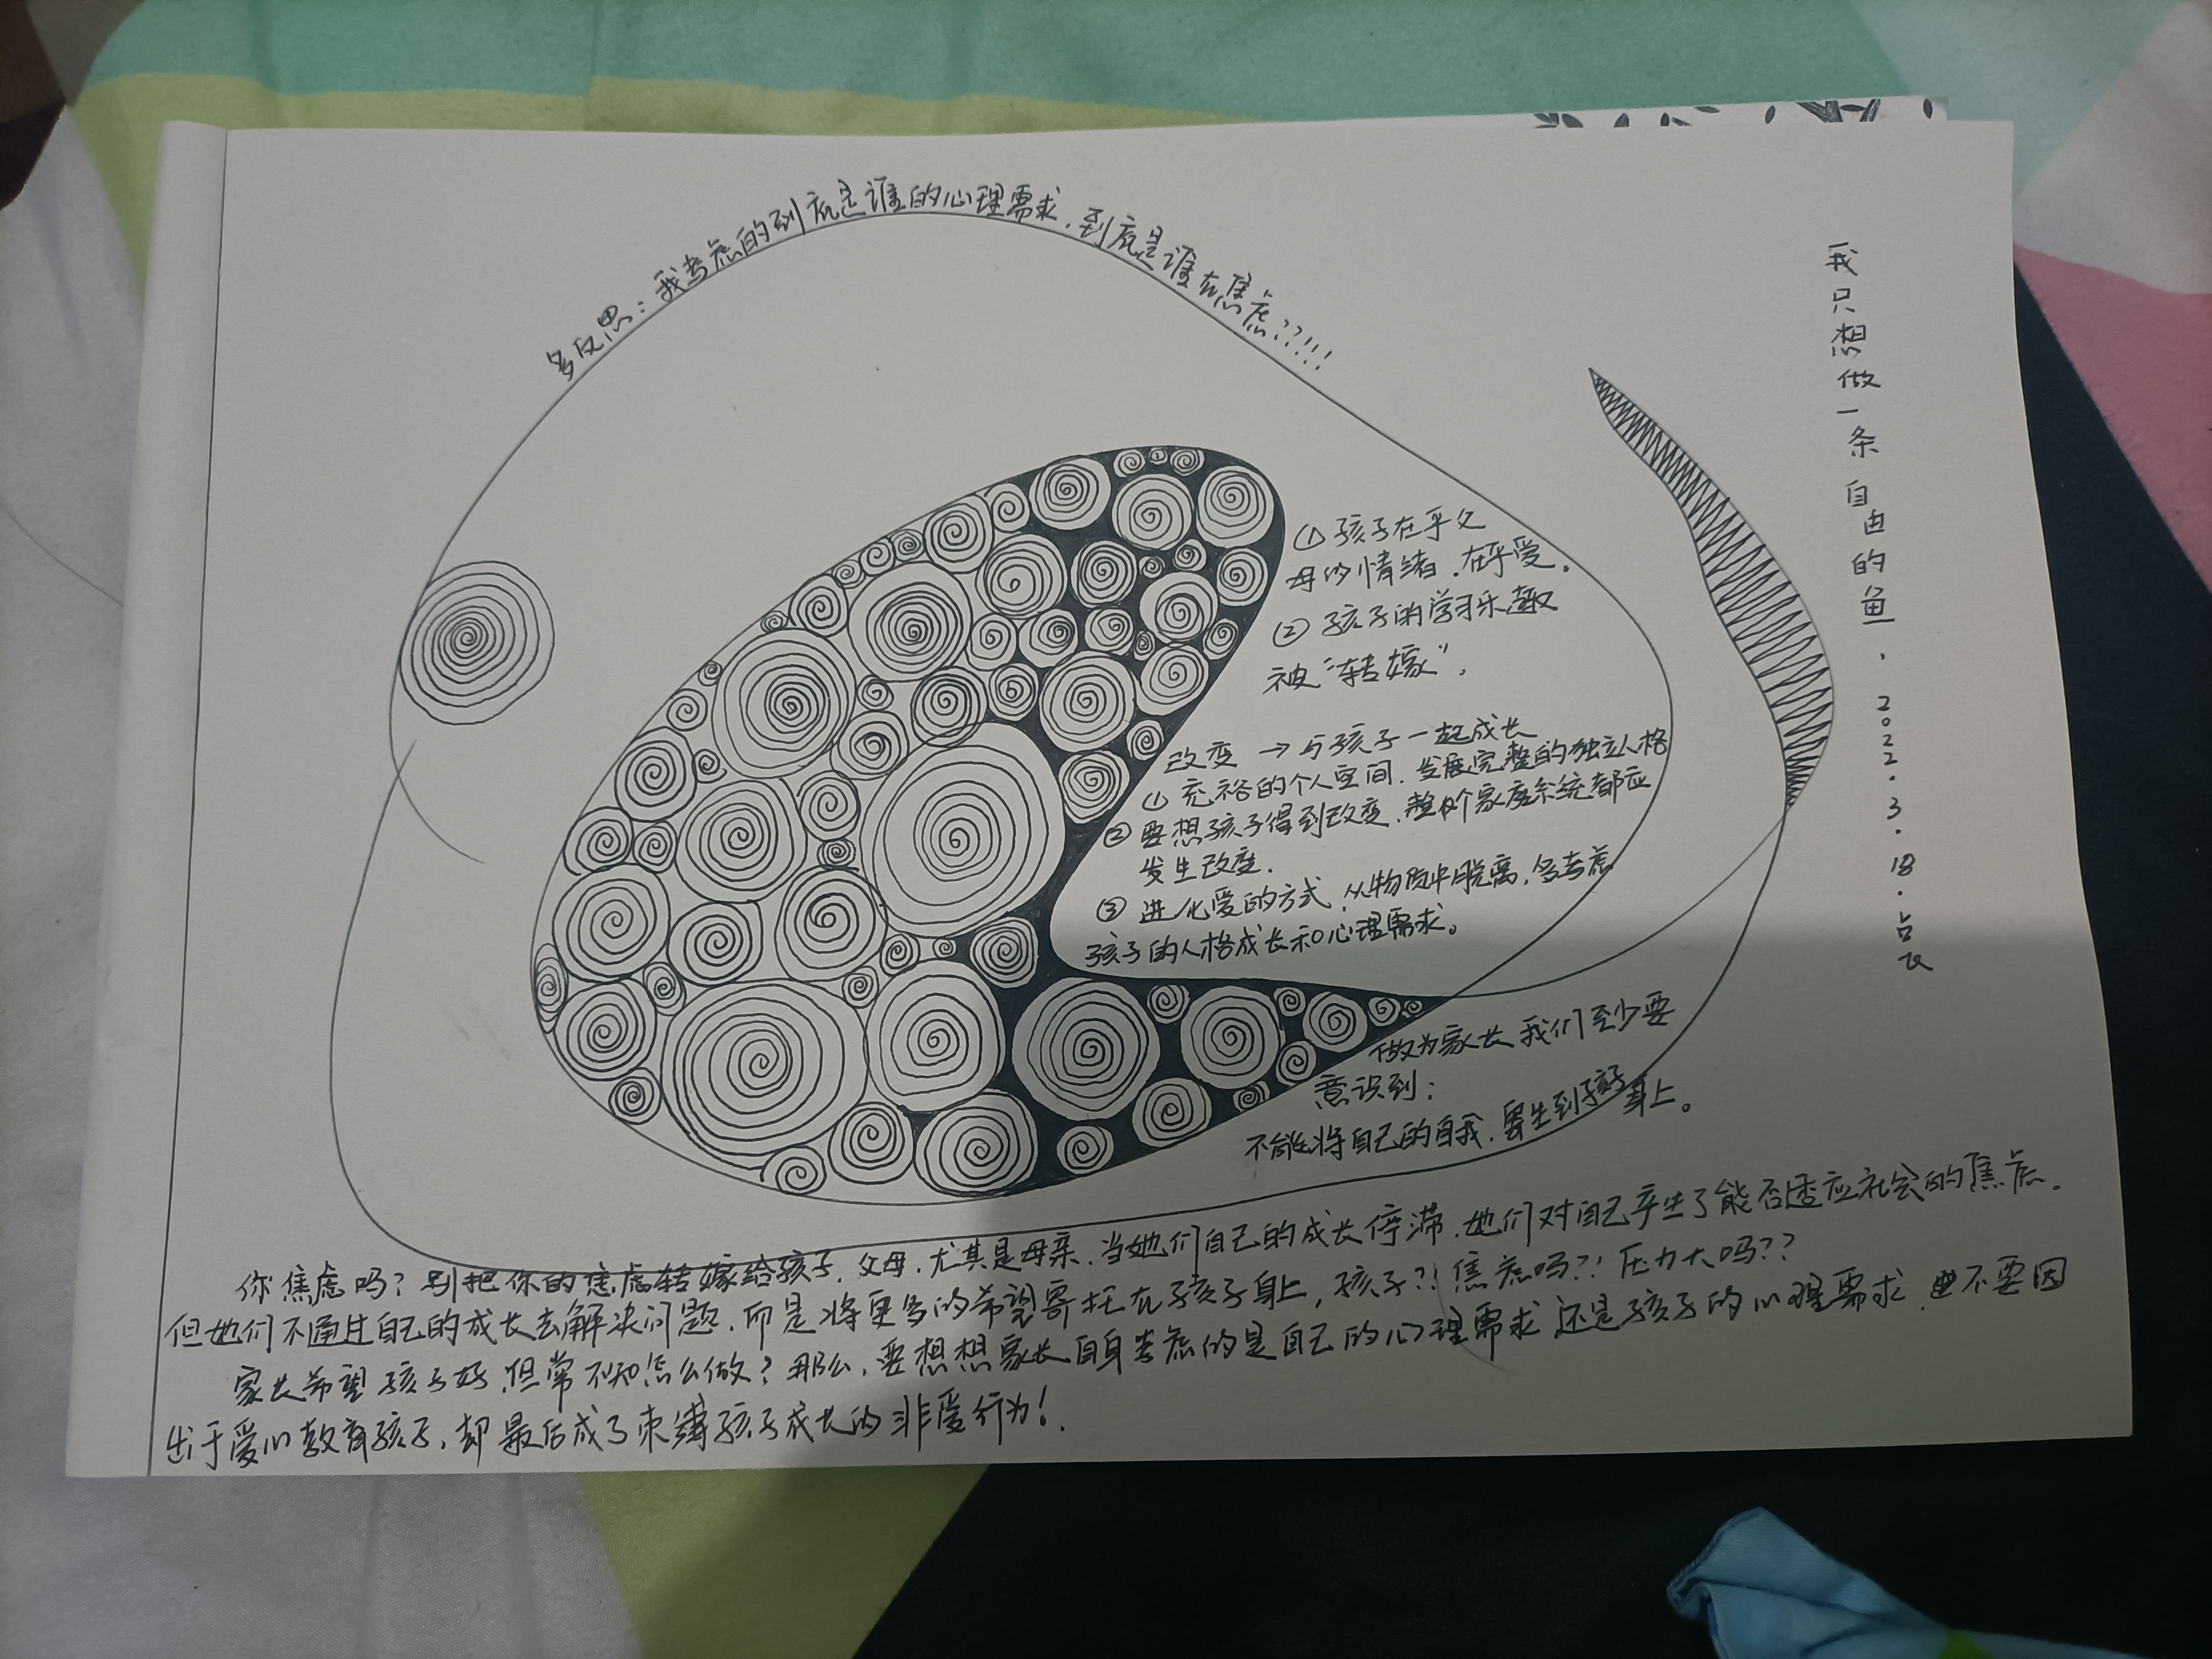 多反思：我考虑的到底是谁的心理需求，到底是谁在焦虑??!!!
我只想做一条自由的鱼，2022.3.18.
①孩子在乎父
母的情绪，在乎爱。
②孩子的学习乐趣
被“转嫁”，
改变→与孩子一起成长
①充裕的个人空间，发展完整的独立人格
②要想孩子得到改变，整个家庭系统都应
发生改变.
③进化爱的方式，从物质中脱离，多考虑
孩子的人格成长和心理需求。
做为家长，我们至少要
意识到：
不能将自己的自我，寄生到孩子身上。
你焦虑吗？别把你的焦虑转嫁给孩子，父母，尤其是母亲，当她们自己的成长停滞，她们对自己产生了能否适应社会的焦虑。
但她们不通过自己的成长去解决问题，而是将更多的希望寄托在孩子身上，孩子?!焦虑吗?!压力大吗??
家长希望孩子好，但常不知怎么做？那么，要想想家长自身考虑的是自己的心理需求还是孩子的心理需求，不要因
出于爱心教育孩子，却最后成了束缚孩子成长的非爱行为！.